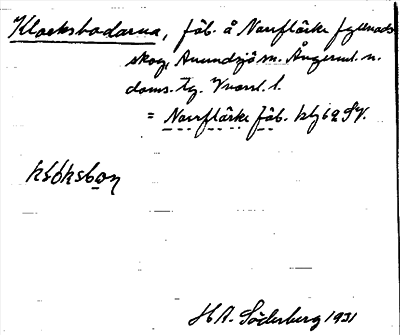 Klocksbodarna, fäb. å Norrflärke fyllnads
skog, Anundsjö sn. Ångerml. n.
doms. tg. Vnorrl. l.
= Norrflärke fäb. blj 62 SV.
klóksbon
H A. Söderberg 1931